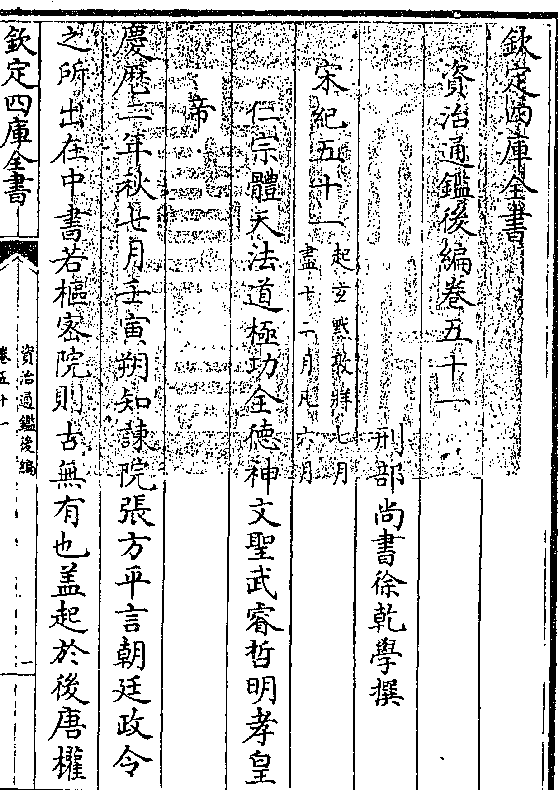 欽定四庫全書
資治通鑑後編卷五十一
刑部尚書徐乾學撰
宋紀五十一
起玄黓敦牂七月
盡十二月凡六月
仁宗體天法道極功全徳神文聖武睿哲明孝皇
帝
慶厯二年秋七月壬寅朔知諫院張方平言朝廷政令
之所出在中書若樞密院則古無有也盖起於後唐權
欽定四庫全書
資治通鑑後編
卷五十一
一